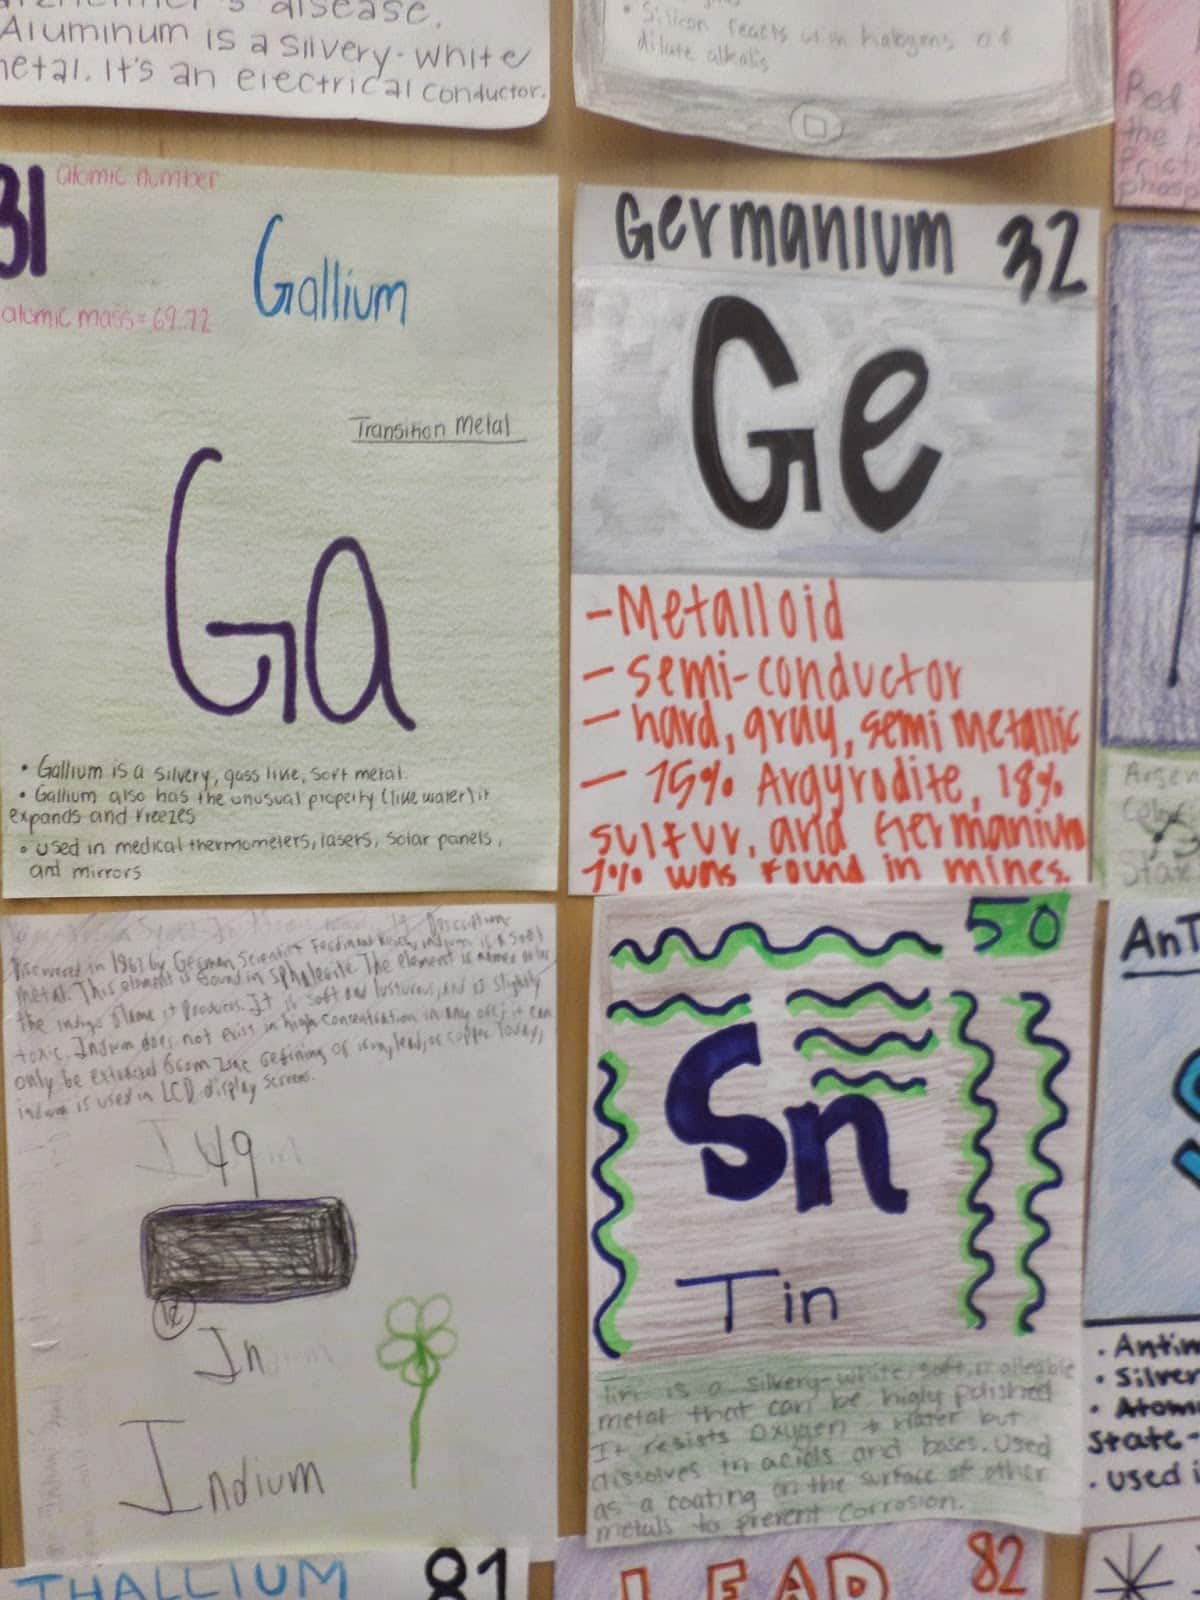 disease.
Aluminum is a silvery-white
metal. It's an electrical conductor.
• Silicon reacts with halogens
dilute alkalis
Red
the
Frict
phosp
31 atomic number
Gallium
atomic mass=69.72
Transition Metal
Ga
• Gallium is a silvery, gass like, soft metal.
• Gallium also has the unusual property (like water) it
expands and freezes
• used in medical thermometers, lasers, solar panels,
and mirrors
Germanium 32
Ge
- Metalloid
- semi-conductor
- hard, gray, semi metallic
- 75% Argyrodite, 18%
sulfur, and Germanium
7% was found in mines.
Arsen
Stat
Description:
Discovered in 1863 by German Scientist Ferdinand Reich, indium is a soft
metal. This element is found in sphalerite. The element is named after
the indigo flame it produces. It is soft and lusturous, and is slightly
toxic. Indium does not exist in high concentration in any ore, it can
only be extracted from zinc refining of iron, lead, or copper. Today,
indium is used in LCD display screens.
49
In
Indium
50
Sn
Tin
Tin is a silvery-white, soft, malleable
metal that can be higly polished
It resists oxygen + water but
dissolves in acids and bases. Used
as a coating on the surface of other
metals to prevent corrosion.
AnT
• Antim
• Silver
• Atom
State-
• used i
THALLIUM 81
LEAD 82